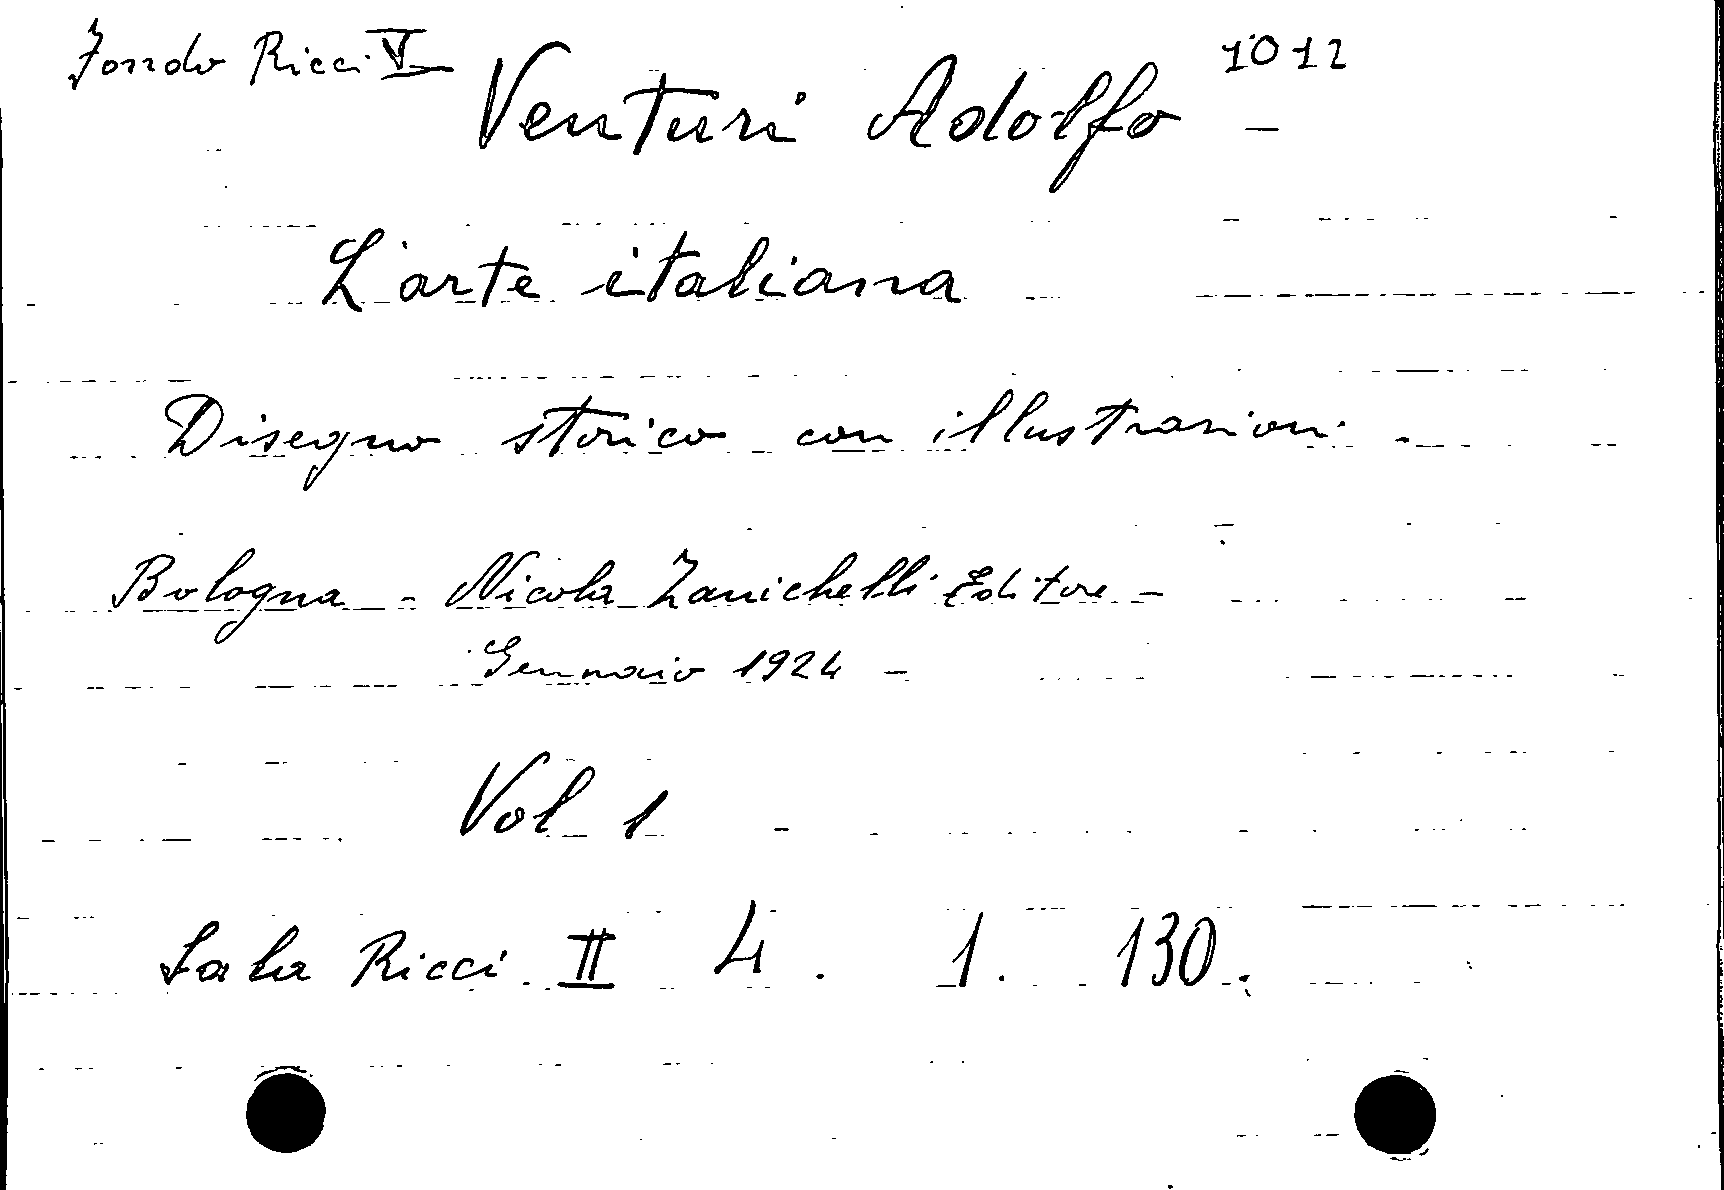 Fondo Ricci V 1012
Venturi Adolfo -
L'arte italiana
Disegno storico con illustrazioni -
Bologna - Nicola Zanichelli Editore -
Gennaio 1924 -
Vol 1
Sala Ricci II 4. 1. 130.